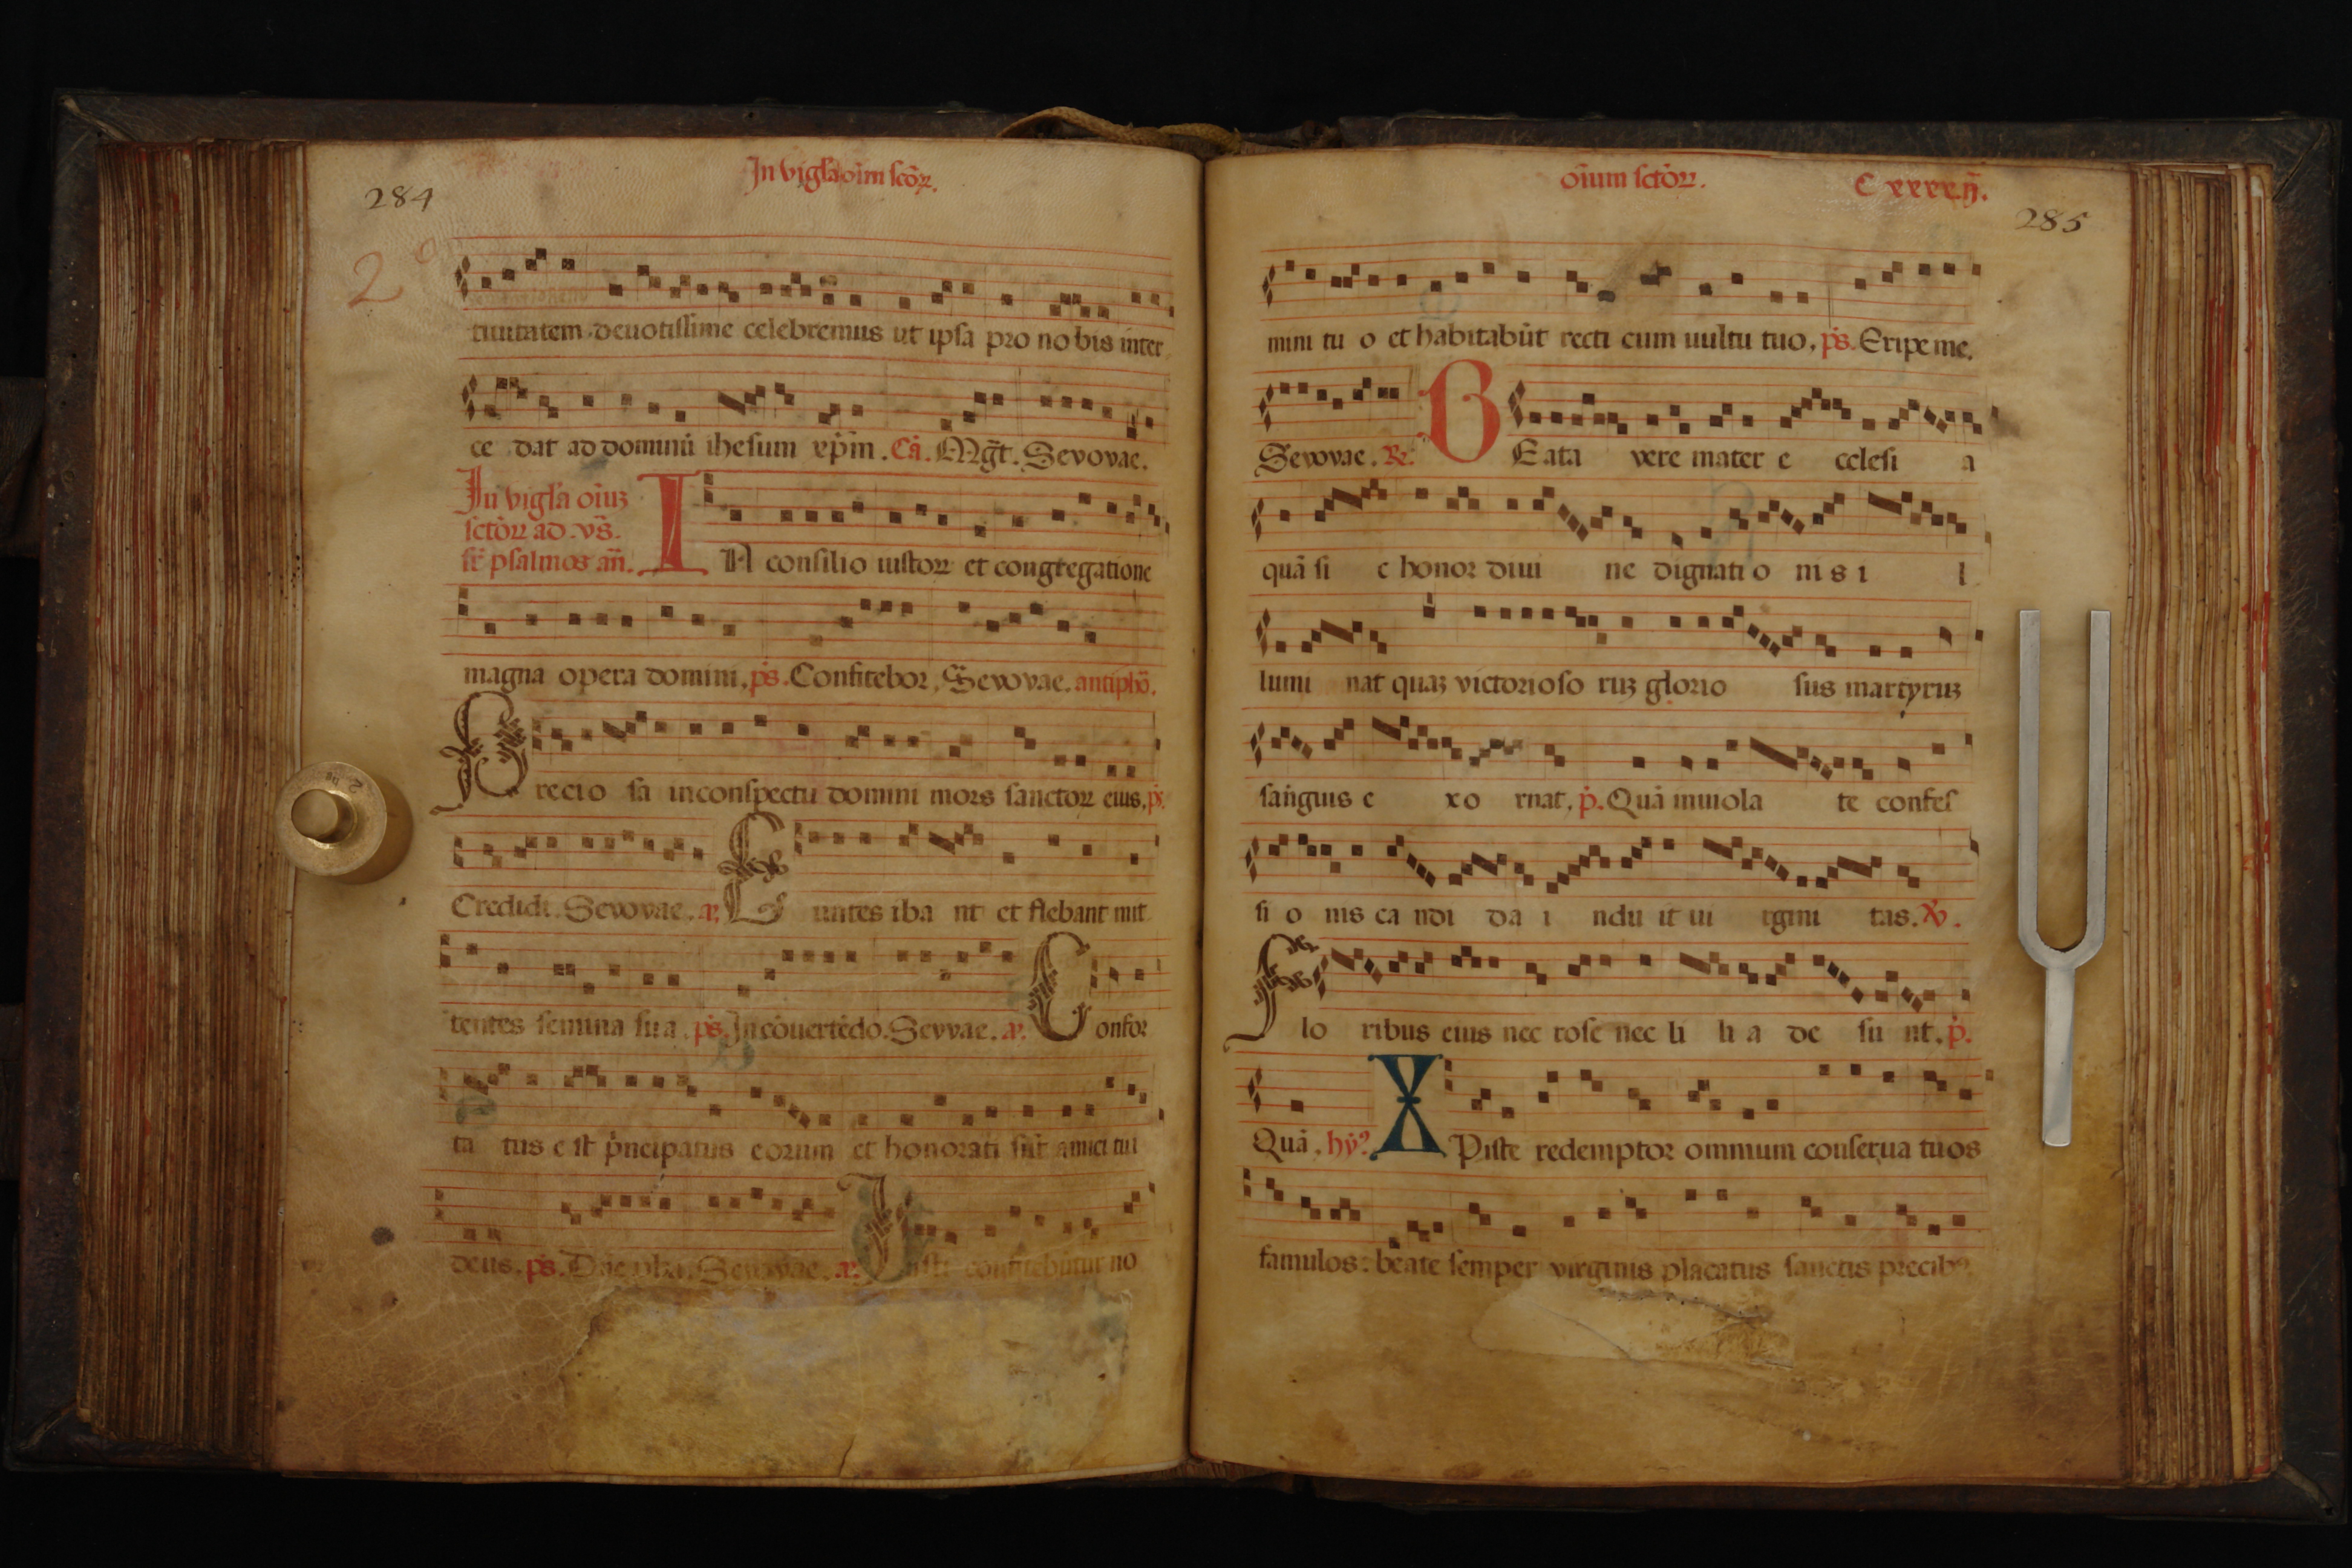 284
In vigl̄a oīm sc̄oꝝ.
2
tiuitatem deuotissime celebremus ut ipsa pro nobis inter
ce dat ad dominū ihesum xp̄m. Cā. Mgt̄. Sevovae.
In vigl̄a oīuꝫ
sctōꝝ ad vs̄.
sr̄ psalmos an̄.
IN consilio iustoꝝ et congregatione
magna opera domini. ps̄. Confitebor. Sevovae. antiphō.
Precio sa in conspectu domini mors sanctoꝝ eius. ps̄.
Credidi. Sevovae. a.
Euntes iba nt et flebant mit
tentes semina sua. ps̄. In cōuertēdo. Sevvae. a. Confor
ta tus e st p̄ncipatus eorum et honorati sūt amici tui
deus. ps̄. Dn̄e pba. Sevovae. a. Iusti confitebūtur no
oīum sctōꝝ. Cxxxxij.
285
mini tu o et habitabūt recti cum uultu tuo. ps̄. Eripe me.
Sevovae. R. BEata vere mater e cclesi a
quā si c honor diui ne dignati o nis i l
lumi nat quaꝫ victorioso ruꝫ glorio sus martyruꝫ
sanguis e xo rnat. p̄. Quā inuiola te confes
si o nis ca ndi da i ndu it ui rgini tas. V.
Flo ribus eius nec rose nec li li a de su nt. p̄.
Quā. hȳꝰ. XPiste redemptor omnium conserua tuos
famulos: beate semper virginis placatus sanctis precibꝰ